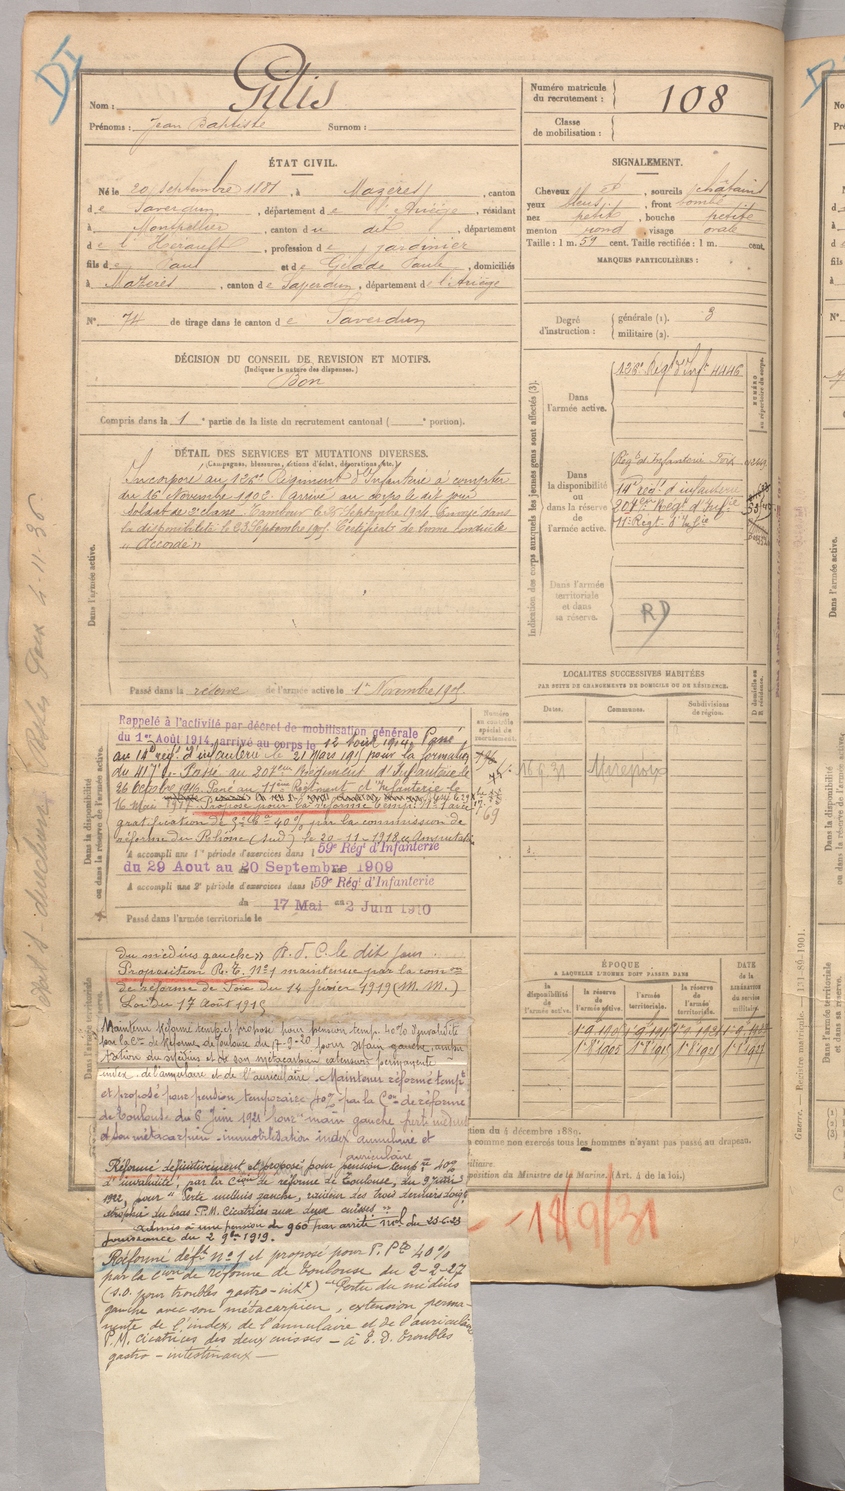 Nom : Gilis
Prénoms : Jean Baptiste Surnom :
Numéro matricule du recrutement : 108
Classe de mobilisation :
ÉTAT CIVIL.
Né le 20 Septembre 1881, à Mazères, canton
de Saverdun, département de l'Ariège, résidant
à Montpellier, canton du dit, département
de l'Hérault, profession de jardinier
fils de Paul et de Gélade Paule, domiciliés
à Mazères, canton de Saverdun, département de l'Ariège
N° 74 de tirage dans le canton de Saverdun
SIGNALEMENT.
Cheveux et, sourcils châtains
yeux bleus, front bombé
nez petit, bouche petite
menton rond, visage ovale
Taille : 1 m. 59 cent. Taille rectifiée : 1 m. cent.
MARQUES PARTICULIÈRES :
Degré d'instruction : générale (1). 3
militaire (2).
DÉCISION DU CONSEIL DE REVISION ET MOTIFS.
(Indiquer la nature des dispenses.)
Bon
Compris dans la 1e partie de la liste du recrutement cantonal ( e portion).
DÉTAIL DES SERVICES ET MUTATIONS DIVERSES.
(Campagnes, blessures, actions d'éclat, décorations, etc.)
Dans l'armée active.
Incorporé au 126e Régiment d'Infanterie à compter
du 16 Novembre 1902. Arrivé au corps le dit jour
soldat de 2e classe. Tambour le Septembre 1904. Envoyé dans
la disponibilité le 23 Septembre 1905. Certificat de bonne conduite
"Accordé"
Passé dans la réserve de l'armée active le 1er Novembre 1905
Indication des corps auxquels les jeunes gens sont affectés (3).
Dans l'armée active.
126e Régt d'Infie 4446
NUMÉRO au répertoire du corps.
Dans la disponibilité ou dans la réserve de l'armée active.
Régt d'Infanterie Foix
14e régt d'infanterie
207e Régt d'Infie
11e Régt d'Infie
Dans l'armée territoriale et dans sa réserve.
RD
Dans la disponibilité ou dans la réserve de l'armée active.
Rappelé à l'activité par décret de mobilisation générale
du 1er Août 1914, arrivé au corps le 12 Août 1914, Passé
au 14e régt d'infanterie le 21 Mars 1915 pour la formation
du 417e. Passé au 207eme Régiment d'Infanterie le
26 Octobre 1916. Passé au 11eme Régiment d'Infanterie le
16 Mai 1917. Proposé pour la réforme avec
gratification de 40% par la commission de
réforme du Rhône (Sud) le 20-11-1918 Amputation
A accompli une 1re période d'exercices dans l 59e Régt d'Infanterie
du 29 Aout au 20 Septembre 1909
A accompli une 2e période d'exercices dans l 59e Régt d'Infanterie
du 17 Mai au 2 Juin 1910
Passé dans l'armée territoriale le
Numéro au contrôle spécial du recrutement.
69
LOCALITES SUCCESSIVES HABITÉES
PAR SUITE DE CHANGEMENTS DE DOMICILE OU DE RÉSIDENCE.
Dates. Communes. Subdivisions de région. D domicile ou R résidence.
16.9.31 Mirepoix
ÉPOQUE
A LAQUELLE L'HOMME DOIT PASSER DANS
la disponibilité de l'armée active. la réserve de l'armée active. l'armée territoriale. la réserve de l'armée territoriale. DATE de la LIBÉRATION du service militaire.
1er 9bre 1905
du médius gauche» R.d.C. le dit jour
Proposition R.T. N°1 maintenue par la comon
de réforme de Foix du 14 février 1919 (M.M.)
Loi du 17 Août 1915
Maintenu Réforme temp. et proposé pour pension temp. 40% d'invalidité
par la Con de Réforme de Toulouse du 17-9-20 pour Main gauche, ampu-
tation du médius et de son métacarpien extension permanente
index, de l'annulaire et de l'auriculaire. Maintenu réforme tempre
et proposé pour pension temporaire 40% par la Con de réforme
de Toulouse du 6 Juin 1921 pour main gauche perte médius
et son métacarpien - immobilisation index annulaire et
auriculaire
Réformé définitivement et proposé pour pension tempre 40%
d'invalidité, par la Con de réforme de Toulouse, du 9 mai
1922, pour "Perte médius gauche, raideur des trois derniers doigts
atrophie du bras P.M. Cicatrices aux deux cuisses"
Admis à une pension de 960 par arrêté du 23-6-23
jouissance du 2 9bre 1919.
Réformé déft N°1 et proposé pour P. Pte 40%
par la Con de réforme de Toulouse du 2-2-27
(s.o. pour troubles gastro-intx) "Perte du médius
gauche avec son métacarpien, extension perma-
nente de l'index, de l'annulaire et de l'auriculaire
P.M. cicatrices des deux cuisses - à E.D. troubles
gastro-intestinaux -
tion du 4 décembre 1889.
a comme non exercés tous les hommes n'ayant pas passé au drapeau.
position du Ministre de la Marine. (Art. 4 de la loi.)
18/9/31
Guerre. — Registre matricule. — 131-89-1901.